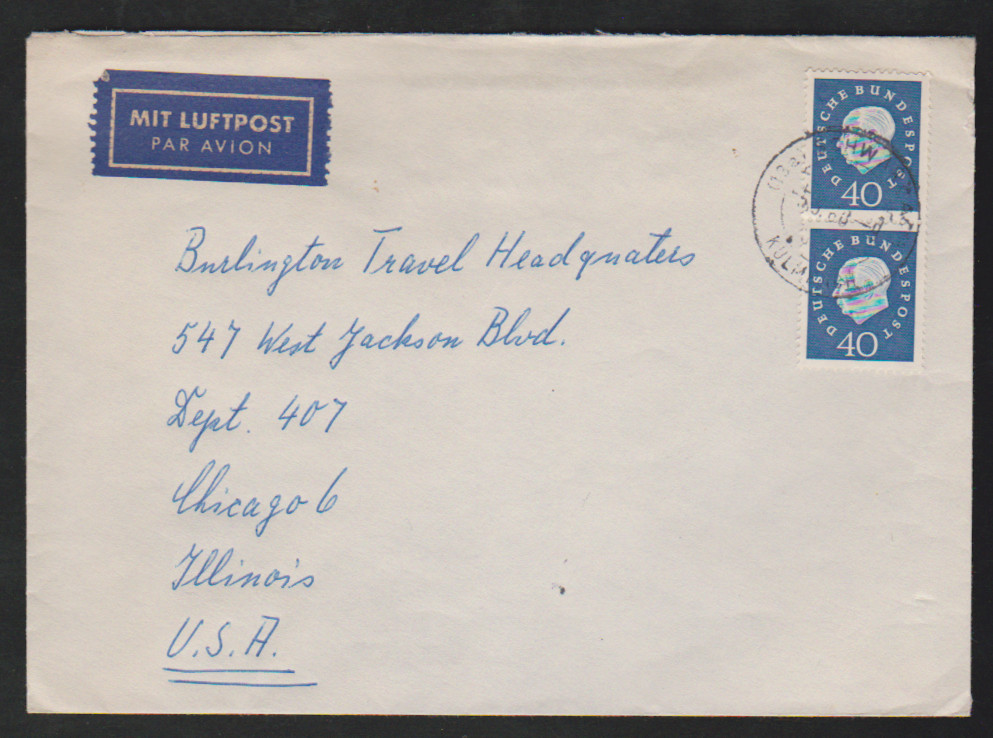 MIT LUFTPOST
PAR AVION
DEUTSCHE BUNDESPOST
40
DEUTSCHE BUNDESPOST
40
Burlington Travel Headqnaters
547 West Jackson Blvd.
Dept. 407
Chicago 6
Illinois
U.S.A.